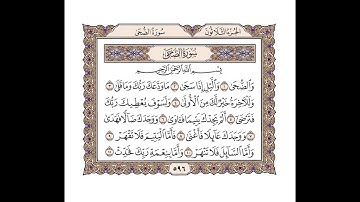 الجزء الثلاثون
سورة الضحى
سورة الضحى
بسم الله الرحمن الرحيم
وَالضُّحَىٰ ١ وَالَّيْلِ إِذَا سَجَىٰ ٢ مَا وَدَّعَكَ رَبُّكَ وَمَا قَلَىٰ ٣
وَلَلْآخِرَةُ خَيْرٌ لَّكَ مِنَ الْأُولَىٰ ٤ وَلَسَوْفَ يُعْطِيكَ رَبُّكَ
فَتَرْضَىٰ ٥ أَلَمْ يَجِدْكَ يَتِيمًا فَآوَىٰ ٦ وَوَجَدَكَ ضَالًّا فَهَدَىٰ
٧ وَوَجَدَكَ عَائِلًا فَأَغْنَىٰ ٨ فَأَمَّا الْيَتِيمَ فَلَا تَقْهَرْ ٩
وَأَمَّا السَّائِلَ فَلَا تَنْهَرْ ١٠ وَأَمَّا بِنِعْمَةِ رَبِّكَ فَحَدِّثْ ١١
٥٩٦